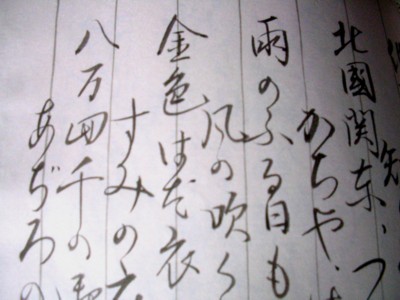 北國関東、つ
かちや、
雨のふる日も
風の吹く
金色はだ衣
すみの衣
八万四千の
あぢろの